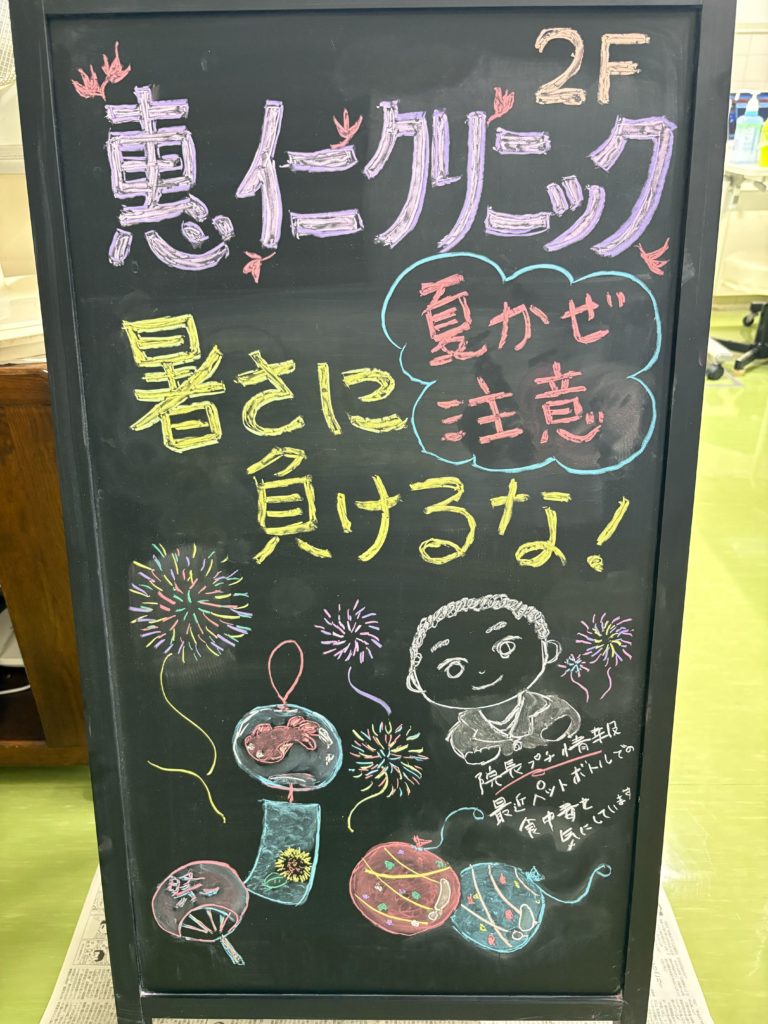 2F
恵仁クリニック
夏かぜ
注意
暑さに
負けるな!
院長プチ情報
最近ペットボトルでの
食中毒を
気にしています
祭